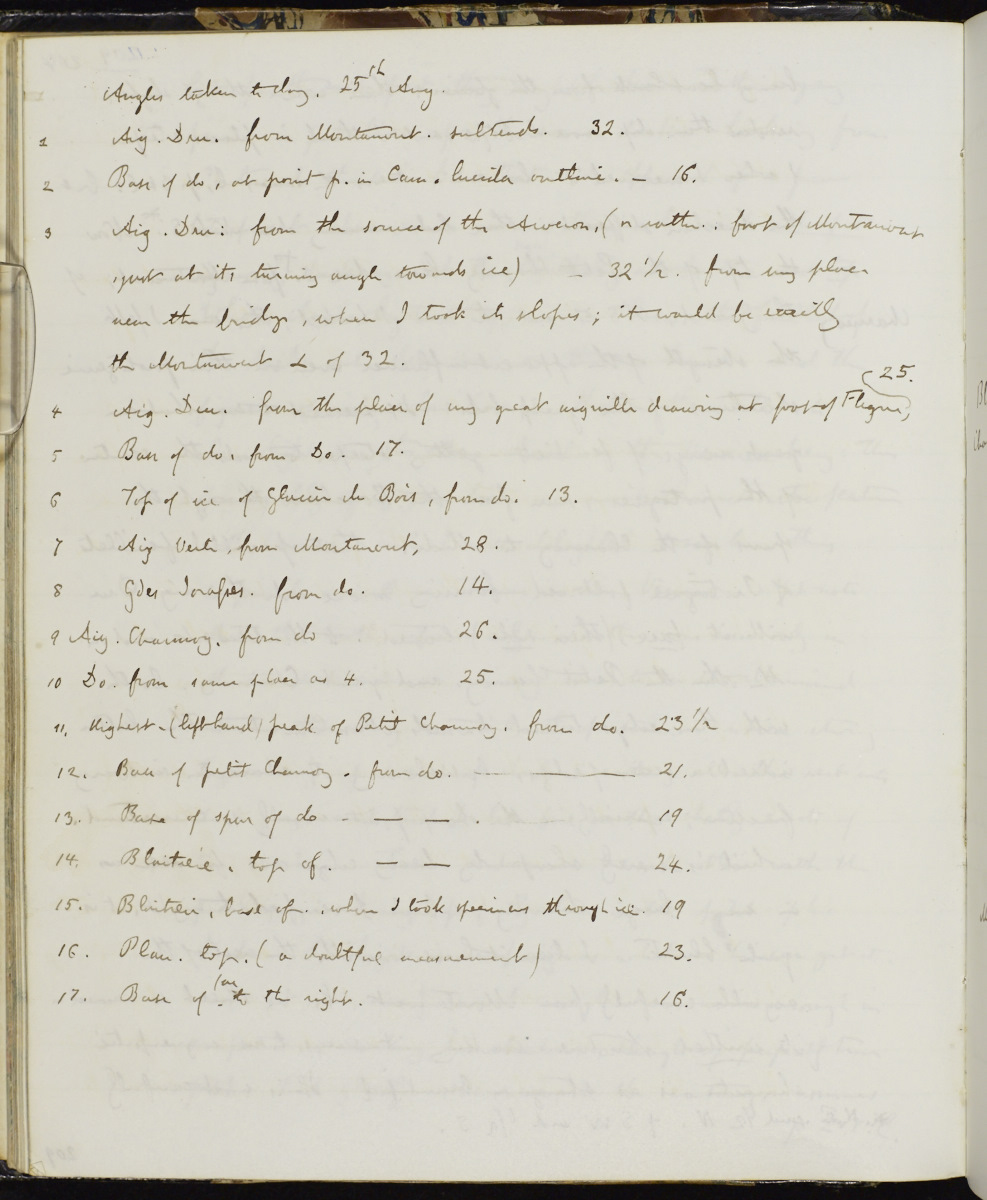 Angles taken to day. 25th Aug.
1 Aig. Dru. from Montanvert. subtends. 32.
2 Base of do, at point p. in Cam. lucida outline. – 16.
3 Aig. Dru: from the source of the Arveron, (or rather. foot of Montanvert
just at its turning angle towards ice) – 32 1/2. from my place
near the bridge, when I took its slopes; it would be exactly
the Montanvert ∠ of 32.
4 Aig. Dru. from the place of my great aiguille drawing at foot of Flegere, 25.
5 Base of do. from Do. 17.
6 Top of ice of Glacier de Bois, from do. 13.
7 Aig Verte, from Montanvert, 28.
8 Gdes Jorasses. from do. 14.
9 Aig. Charmoz. from do 26.
10 Do. from same place as 4. 25.
11. Highest (left hand) peak of Petit Charmoz. from do. 23 1/2
12. Base of petit Charmoz. from do. — — 21.
13. Base of spur of do - — — . 19
14. Blaitiere. top of. — — 24.
15. Blaitiere, base of. where I took specimens through ice. 19
16. Plan. top. (a doubtful measurement) 23.
17. Base of far to the right. 16.